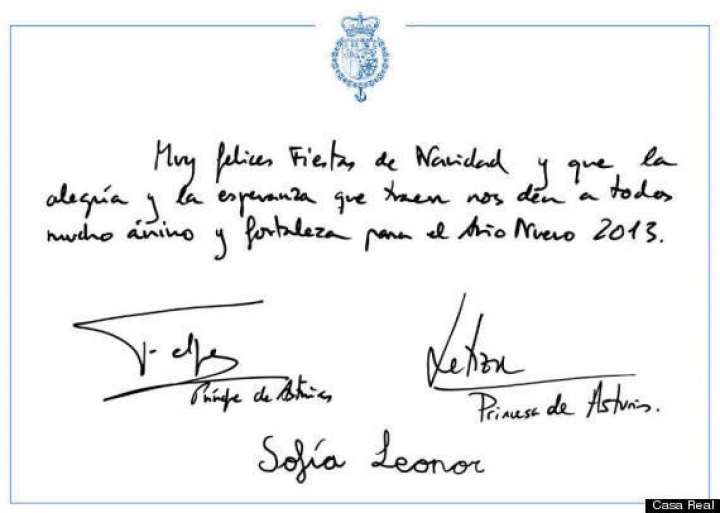 Muy felices Fiestas de Navidad y que la
alegría y la esperanza que traen nos den a todos
mucho ánimo y fortaleza para el Año Nuevo 2013.
Felipe
Príncipe de Asturias
Letizia
Princesa de Asturias.
Sofía Leonor
Casa Real